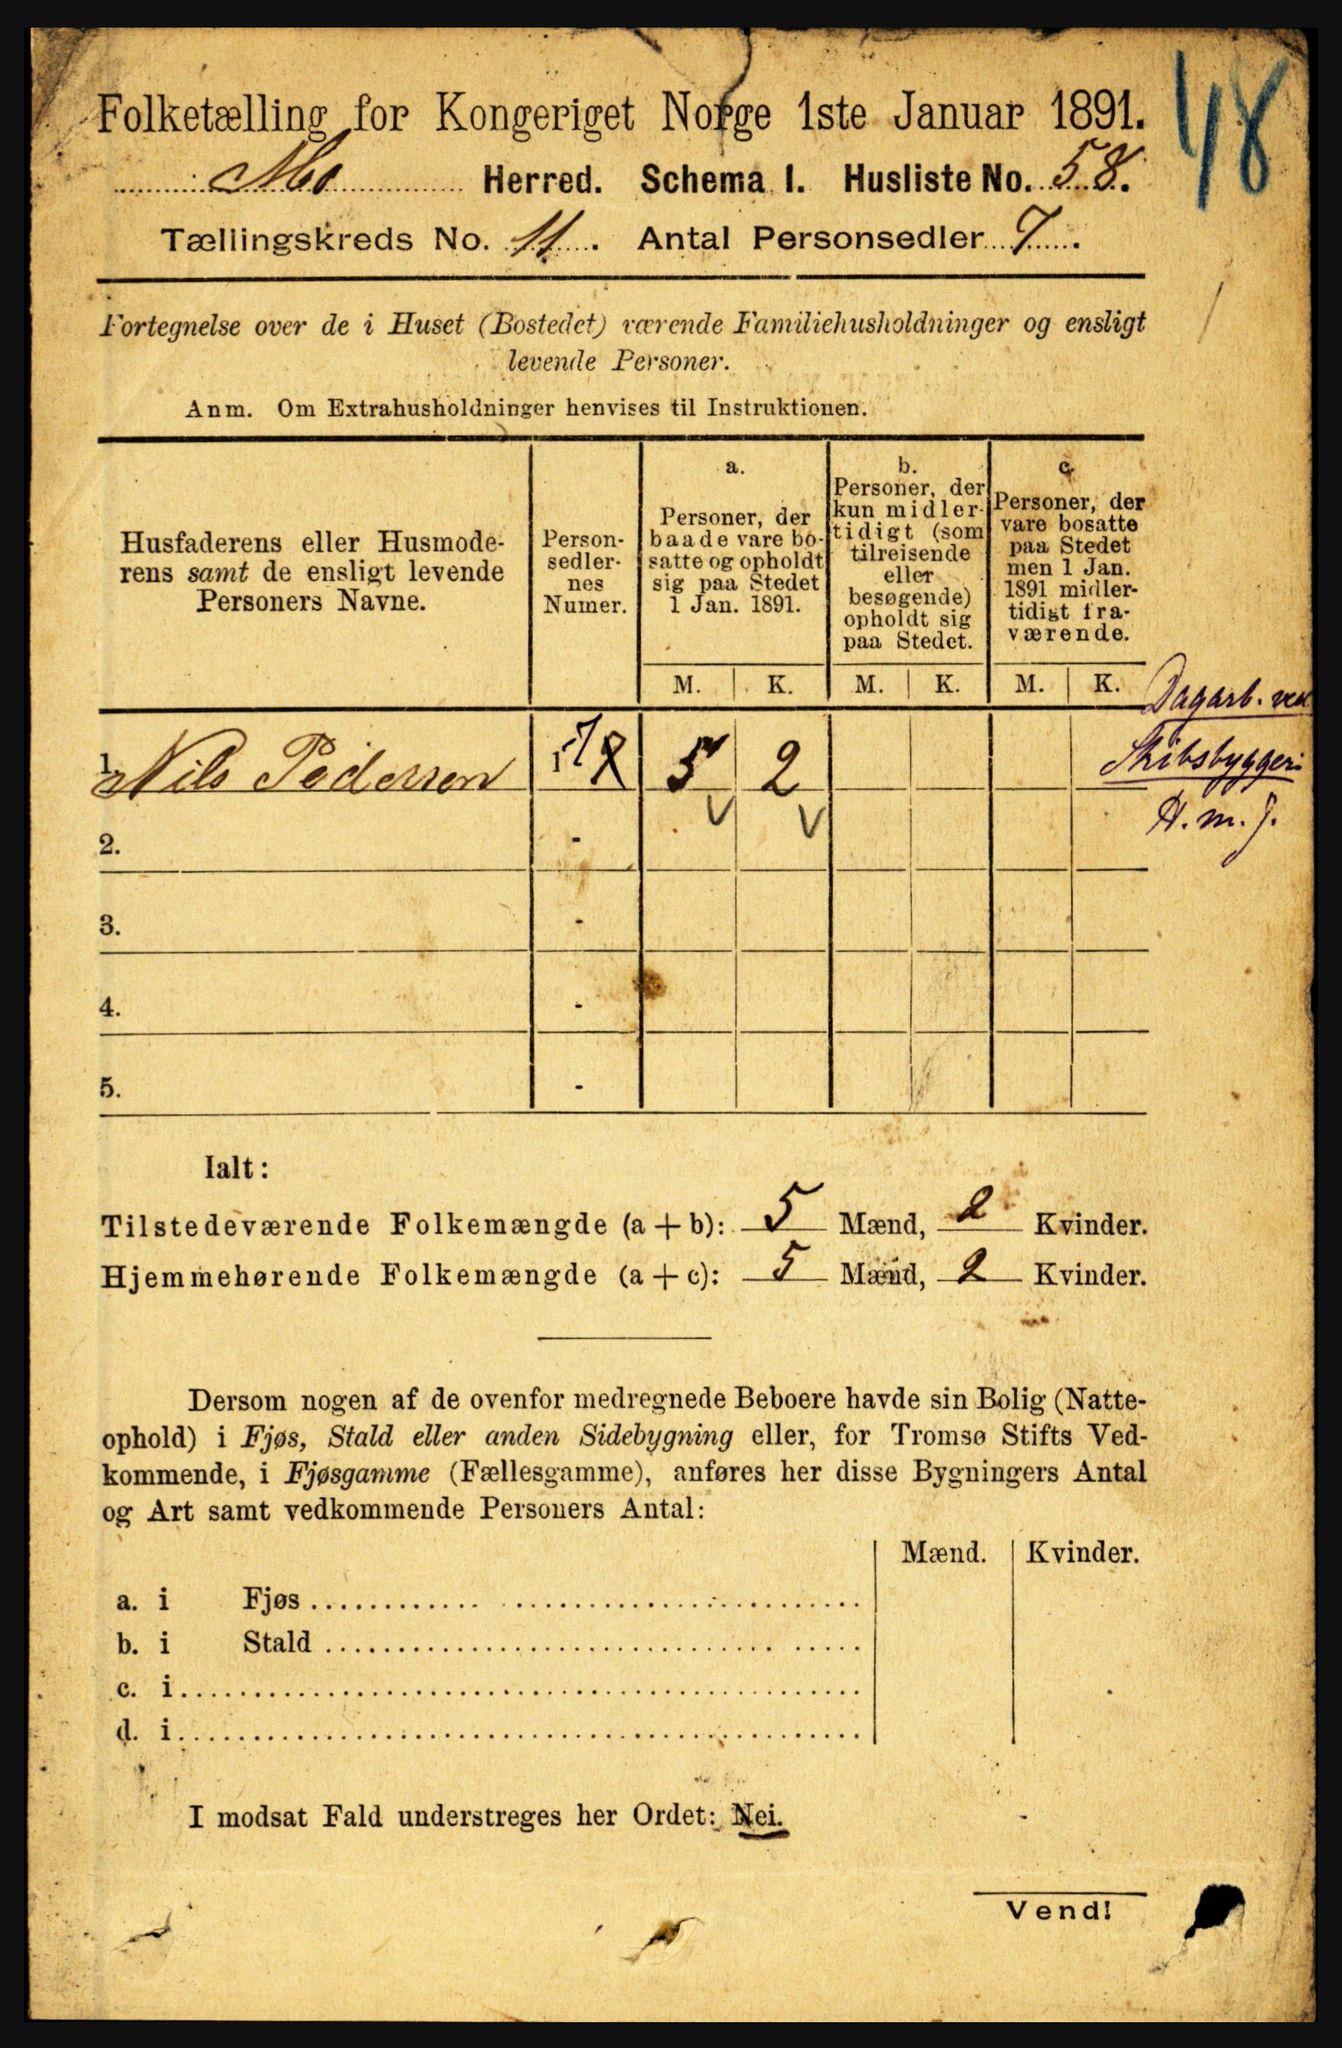 48
Folketælling for Kongeriget Norge 1ste Januar 1891.
Mo Herred. Schema I. Husliste No. 58.
Tællingskreds No. 11. Antal Personsedler 7.
Fortegnelse over de i Huset (Bostedet) værende Familiehusholdninger og ensligt
levende Personer.
Anm. Om Extrahusholdninger henvises til Instruktionen.
Husfaderens eller Husmode-
rens samt de ensligt levende
Personers Navne.
Person-
sedler-
nes
Numer.
a.
Personer, der
baade vare bo-
satte og opholdt
sig paa Stedet
1 Jan. 1891.
b.
Personer, der
kun midler-
tidigt (som
tilreisende
eller
besøgende)
opholdt sig
paa Stedet.
c.
Personer, der
vare bosatte
paa Stedet
men 1 Jan.
1891 midler-
tidigt fra-
værende.
M. K. M. K. M. K.
Dagarb. ved
Skibsbyggeri
H. m. J.
1. Nils Pedersen 1-7 5 2
2. -
3. -
4. -
5. -
Ialt:
Tilstedeværende Folkemængde (a + b): 5 Mænd, 2 Kvinder.
Hjemmehørende Folkemængde (a + c): 5 Mænd, 2 Kvinder.
Dersom nogen af de ovenfor medregnede Beboere havde sin Bolig (Natte-
ophold) i Fjøs, Stald eller anden Sidebygning eller, for Tromsø Stifts Ved-
kommende, i Fjøsgamme (Fællesgamme), anføres her disse Bygningers Antal
og Art samt vedkommende Personers Antal:
Mænd. Kvinder.
a. i Fjøs
b. i Stald
c. i
d. i
I modsat Fald understreges her Ordet: Nei.
Vend!